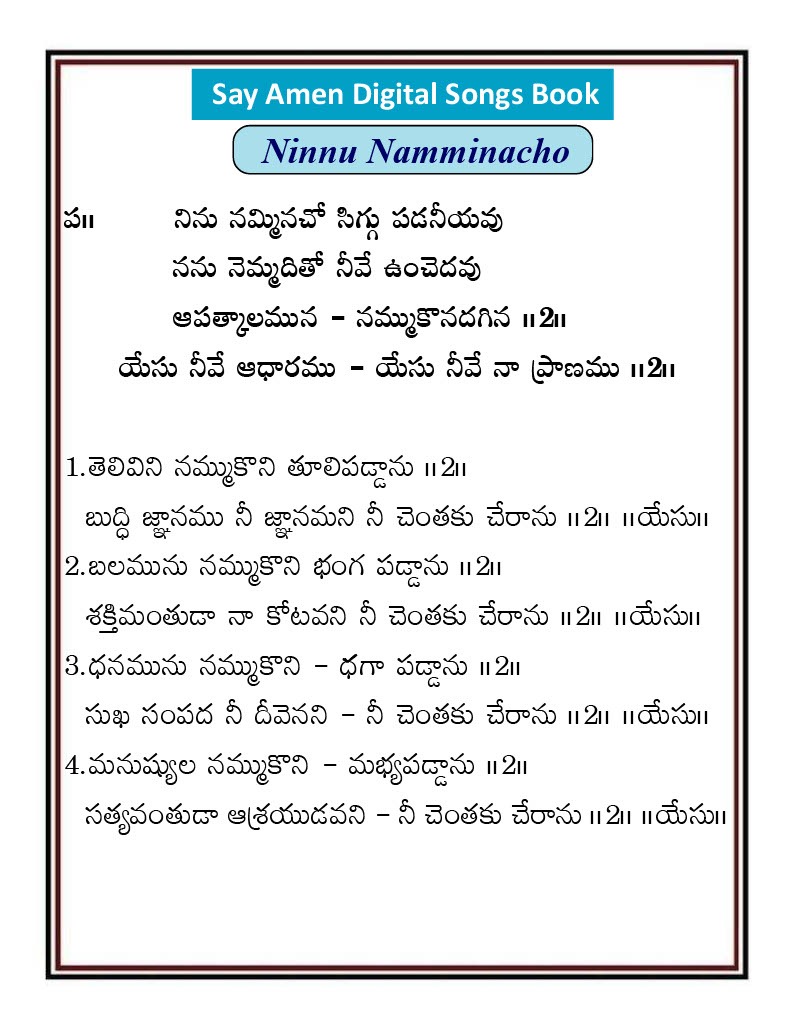 Say Amen Digital Songs Book
Ninnu Namminacho
ప॥ నిను నమ్మినచో సిగ్గు పడనీయవు
నను నెమ్మదితో నీవే ఉంచెదవు
ఆపత్కాలమున - నమ్ముకొనదగిన ॥2॥
యేసు నీవే ఆధారము - యేసు నీవే నా ప్రాణము ॥2॥
1.తెలివిని నమ్ముకొని తూలిపడ్డాను ॥2॥
బుద్ధి జ్ఞానము నీ జ్ఞానమని నీ చెంతకు చేరాను ॥2॥ ॥యేసు॥
2.బలమును నమ్ముకొని భంగ పడ్డాను ॥2॥
శక్తిమంతుడా నా కోటవని నీ చెంతకు చేరాను ॥2॥ ॥యేసు॥
3.ధనమును నమ్ముకొని - ధగా పడ్డాను ॥2॥
సుఖ సంపద నీ దీవెనని - నీ చెంతకు చేరాను ॥2॥ ॥యేసు॥
4.మనుష్యుల నమ్ముకొని - మభ్యపడ్డాను ॥2॥
సత్యవంతుడా ఆశ్రయుడవని - నీ చెంతకు చేరాను ॥2॥ ॥యేసు॥